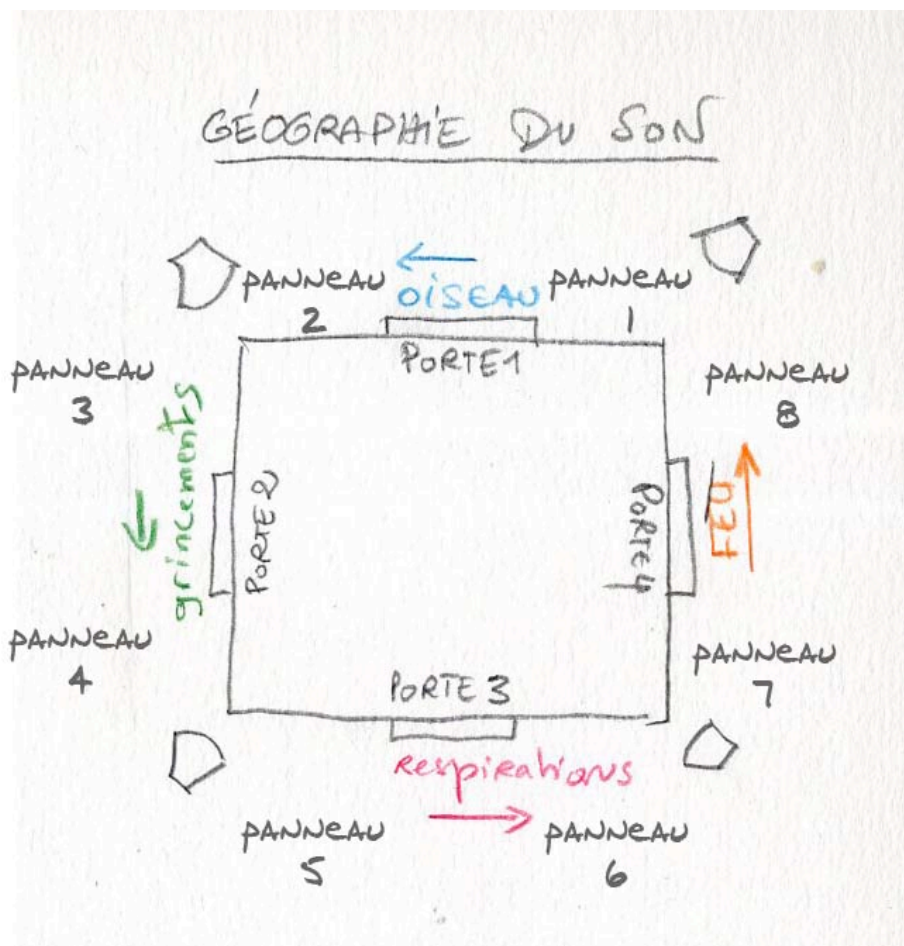 GÉOGRAPHIE DU SON
PANNEAU
2
OISEAU
PANNEAU
1
PORTE 1
PANNEAU
3
grincements
PORTE 2
PANNEAU
8
PORTE 4
FEU
PANNEAU
4
PANNEAU
7
PORTE 3
Respirations
PANNEAU
5
PANNEAU
6